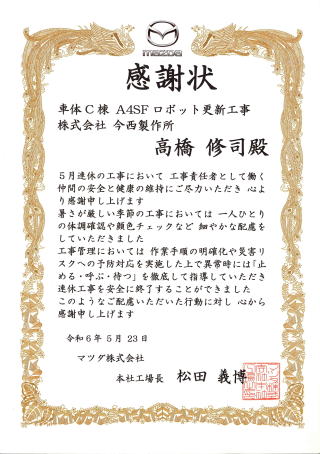 mazda
感謝状
車体C棟 A4SFロボット更新工事
株式会社 今西製作所
高橋 修司殿
5月連休の工事において 工事責任者として働く
仲間の安全と健康の維持にご尽力いただき 心よ
り感謝申し上げます
暑さが厳しい季節の工事においては 一人ひとり
の体調確認や顔色チェックなど 細やかな配慮を
していただきました
工事管理においては 作業手順の明確化や災害リ
スクへの予防対応を実施した上で異常時には「止
める・呼ぶ・待つ」を徹底して指導していただき
連休工事を安全に終了することができました
このようなご配慮いただいた行動に対し 心から
感謝申し上げます
令和6年 5月 23日
マツダ株式会社
本社工場長 松田 義博